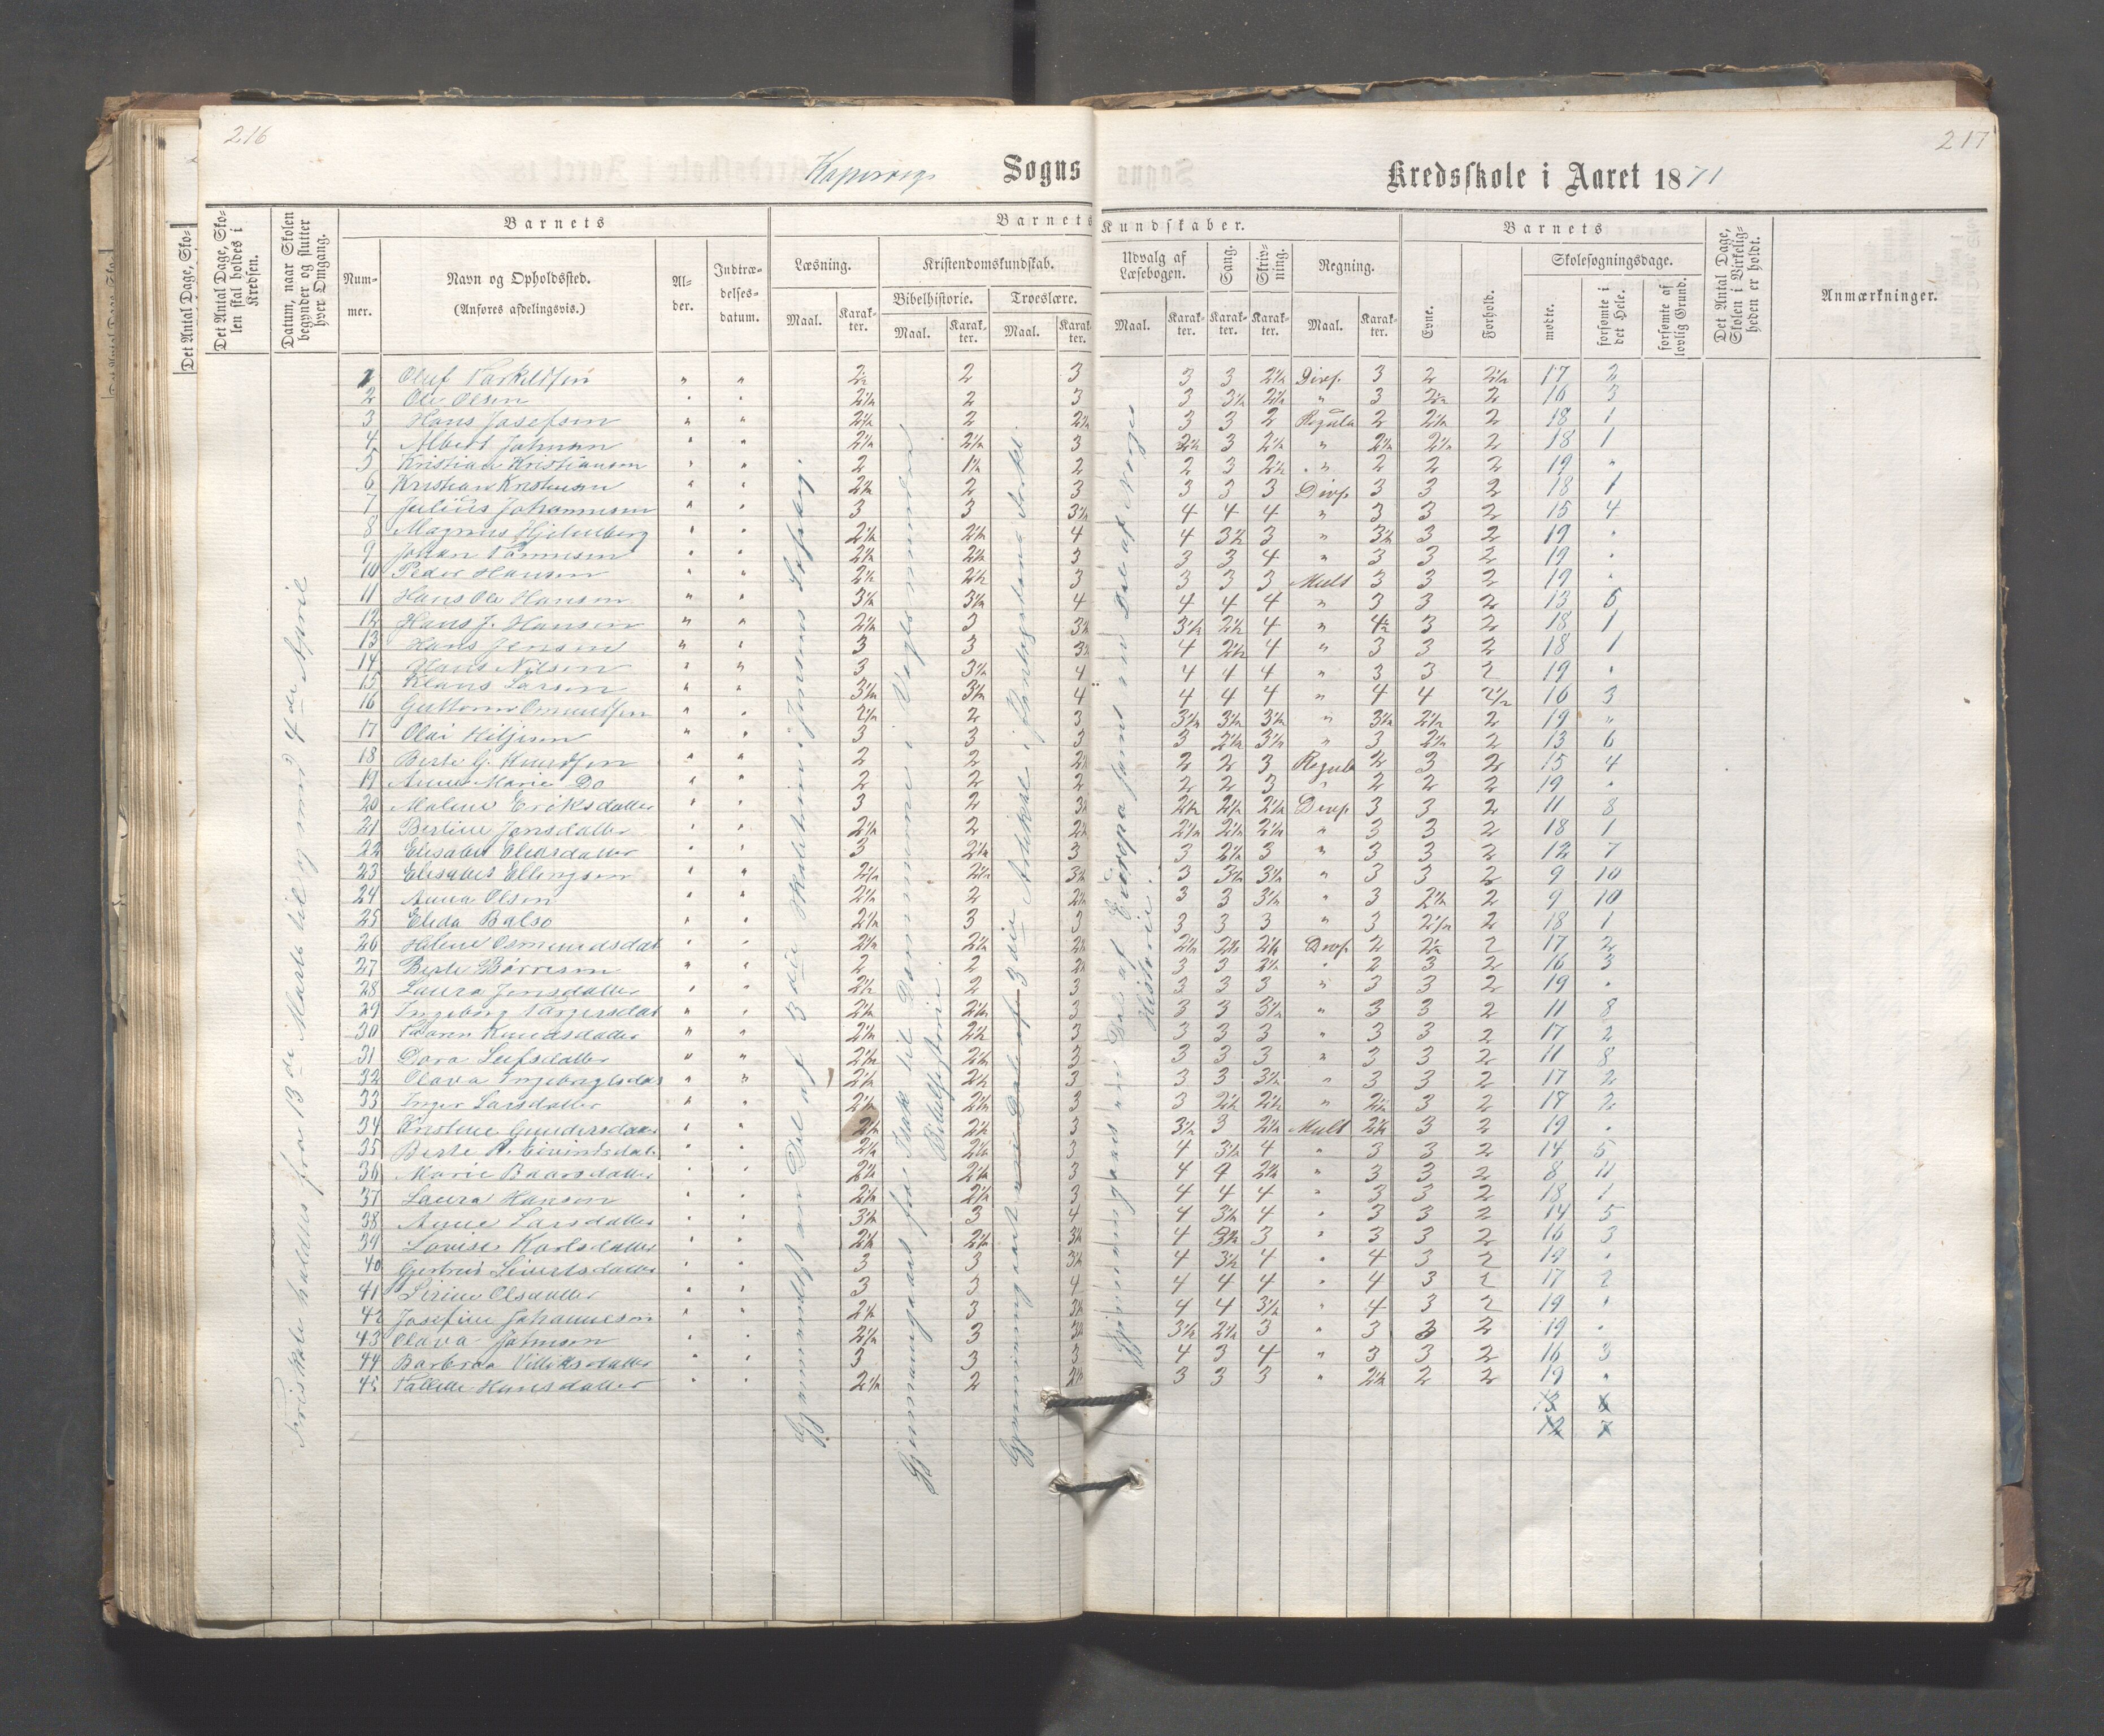 216
217
Sogns
Kredsskole i Aaret 1871
Det Antal Dage, Sko-
Det Antal Dage, Sko-
len skal holdes i
Kredsen.
Datum, naar Skolen
begynder og slutter
hver Omgang.
Barnets
Num-
mer.
Navn og Opholdssted.
(Anføres afdelingsvis.)
Al-
der.
Indtræ-
delses-
datum.
Barnets
Kundskaber.
Læsning.
Maal.
Karak-
ter.
Kristendomskundskab.
Bibelhistorie.
Maal.
Karak-
ter.
Troeslære.
Maal.
Karak-
ter.
Udvalg af
Læsebogen.
Maal.
Karak-
ter.
Sang.
Karak-
ter.
Skriv-
ning.
Karak-
ter.
Regning.
Maal.
Karak-
ter.
Barnets
Evne.
Forhold.
Skolesøgningsdage.
mødte.
forsømte i
det Hele.
forsømte af
lovlig Grund.
Det Antal Dage,
Skolen i Virkelig-
heden er holdt.
Anmærkninger.
1 Oluf Torkildsen " " 2½ 2 3 3 3 2½ Divs. 3 2 2½ 17 2
2 Ole Olsen " " 2½ 2 3 3 3½ 2½ " 3 2½ 2 16 3
3 Hans Josefsen " " 2½ 2 2½ 3 3 2 Regula 2 2½ 2 18 1
4 Albert Johnsen " " 2½ 2½ 3 2½ 3 2½ " 2½ 2½ 2 18 1
5 Kristian Kristiansen " " 2 1½ 2 2 3 2½ " 2 2 2 19 "
6 Kristian Kristensen " " 2½ 2 3 3 3 3 Divs. 3 3 2 18 1
7 Julius Johannesen " " 3 3 3½ 4 4 4 " 3 3 2 15 4
8 Magnus Hjelmberg " " 2½ 2½ 4 4 3½ 3 " 3½ 3 2 19 "
9 Johan Tønnesen " " 2½ 2½ 3 3 3 4 " 3 3 2 19 "
10 Peder Hansen " " 2½ 2½ 3 3 3 3 Mult 3 3 2 19 "
11 Hans Ole Hansen " " 3½ 3½ 4 4 4 4 " 3 3 2 13 6
12 Hans J. Hansen " " 2½ 3 3½ 3½ 2½ 4 " 4½ 3 2 18 1
13 Hans Jensen " " 3 3 3½ 4 2½ 4 " 3 3 2 18 1
14 Hans Nilsen " " 3 3½ 4 4 4 4 " 3 3 2 19 "
15 Klaus Larsen " " 3½ 3½ 4 4 4 4 " 4 4 2½ 16 3
16 Guttorm Osmundsen " " 2½ 2 3 3½ 3½ 3½ " 3½ 2½ 2 19 "
17 Olai Hiljesen " " 3 3 3 3 2½ 3½ " 3 2½ 2 13 6
18 Berte G. Knudsen " " 2 2 2½ 2 2 3 Regula 2 3 2 15 4
19 Anne Marie Do " " 2 2 2 2 2 3 " 2 2 2 19 "
20 Malene Eriksdatter " " 3 2 3½ 2½ 2½ 2½ Divs. 3 3 2 11 8
21 Bertine Jonsdatter " " 2½ 2 2½ 2½ 2½ 2½ " 3 3 2 18 1
22 Elisabet Olersdatter " " 3 2½ 3 3 2½ 3 " 3 3 2 12 7
23 Elisabet Ellingsen " " 2½ 2½ 3½ 3 3½ 3½ " 3 3 2 9 10
24 Anna Olsen " " 2½ 2 2½ 3 3 3½ " 3 2½ 2 9 10
25 Elida Balso " " 2½ 3 3 3 3 3 " 3 2½ 2 18 1
26 Helene Osmundsdat " " 2½ 2½ 2½ 2½ 2½ 2½ Divs. 2 2½ 2 17 2
27 Berte Børresen " " 2 2 2½ 3 3 2½ " 2 3 2 16 3
28 Laura Jensdatter " " 2½ 2 3 3 3 3 " 3 3 2 19 "
29 Ingeborg Torgersdat " " 2½ 2½ 3 3 3 3½ " 3 3 2 11 8
30 Maren Knudsdatter " " 2½ 2½ 3 3 3 3 " 3 3 2 17 2
31 Dora Leifsdatter " " 2½ 2½ 3 3 3 3 " 3 3 2 11 8
32 Olava Ingebregtsdat " " 2½ 2½ 3 3 3 3½ " 3 3 2 17 2
33 Inger Larsdatter " " 2½ 2½ 3 3 2½ 2½ " 2½ 3 2 17 2
34 Kristine Gundersdatter " " 2½ 2½ 3 3½ 3 2½ Mult 2½ 3 2 19 "
35 Berte A. Eivindsdat. " " 2½ 2½ 3 4 3½ 4 " 3 3 2 14 5
36 Marie Baarsdatter " " 2½ 2½ 3 4 4 2½ " 3 3 2 8 11
37 Laura Hansen " " 2½ 2½ 3 4 4 4 " 3 3 2 18 1
38 Anne Larsdatter " " 3½ 3 4 4 3½ 4 " 3 3 2 14 5
39 Lovise Karlsdatter " " 2½ 2½ 3½ 4 3½ 3 " 3 3 2 16 3
40 Gjertrud Sivertsdatter " " 3 3 3½ 4 3½ 4 " 4 3 2 19 "
41 Sirine Olsdatter " " 3 3 4 4 4 4 " 4 3 2 17 2
42 Josefine Johannesen " " 2½ 3 3½ 4 4 3½ " 4 3 2 19 "
43 Olava Johnsen " " 2½ 3 3½ 3½ 2½ 3 " 3 3 2 19 "
44 Barbraa Villiksdatter " " 3 3 3 4 3 4 " 3 3 2 16 3
45 Tallette Hansdatter " " 2½ 2 2½ 3 3 3 " 2½ 2 2 19 "
13 6
12 7
holdtes fra 13de Marts til og med 4de April
Gjennemgaaet fra Isak til Dommerne i Vogts mindre
Bibelhistorie.
Gjennemgaaet en Del af 3die Artikel i Pontoppidans Forkl.
Gjennemgaaet en Del af Europa samt en Del af Norges
Historie.